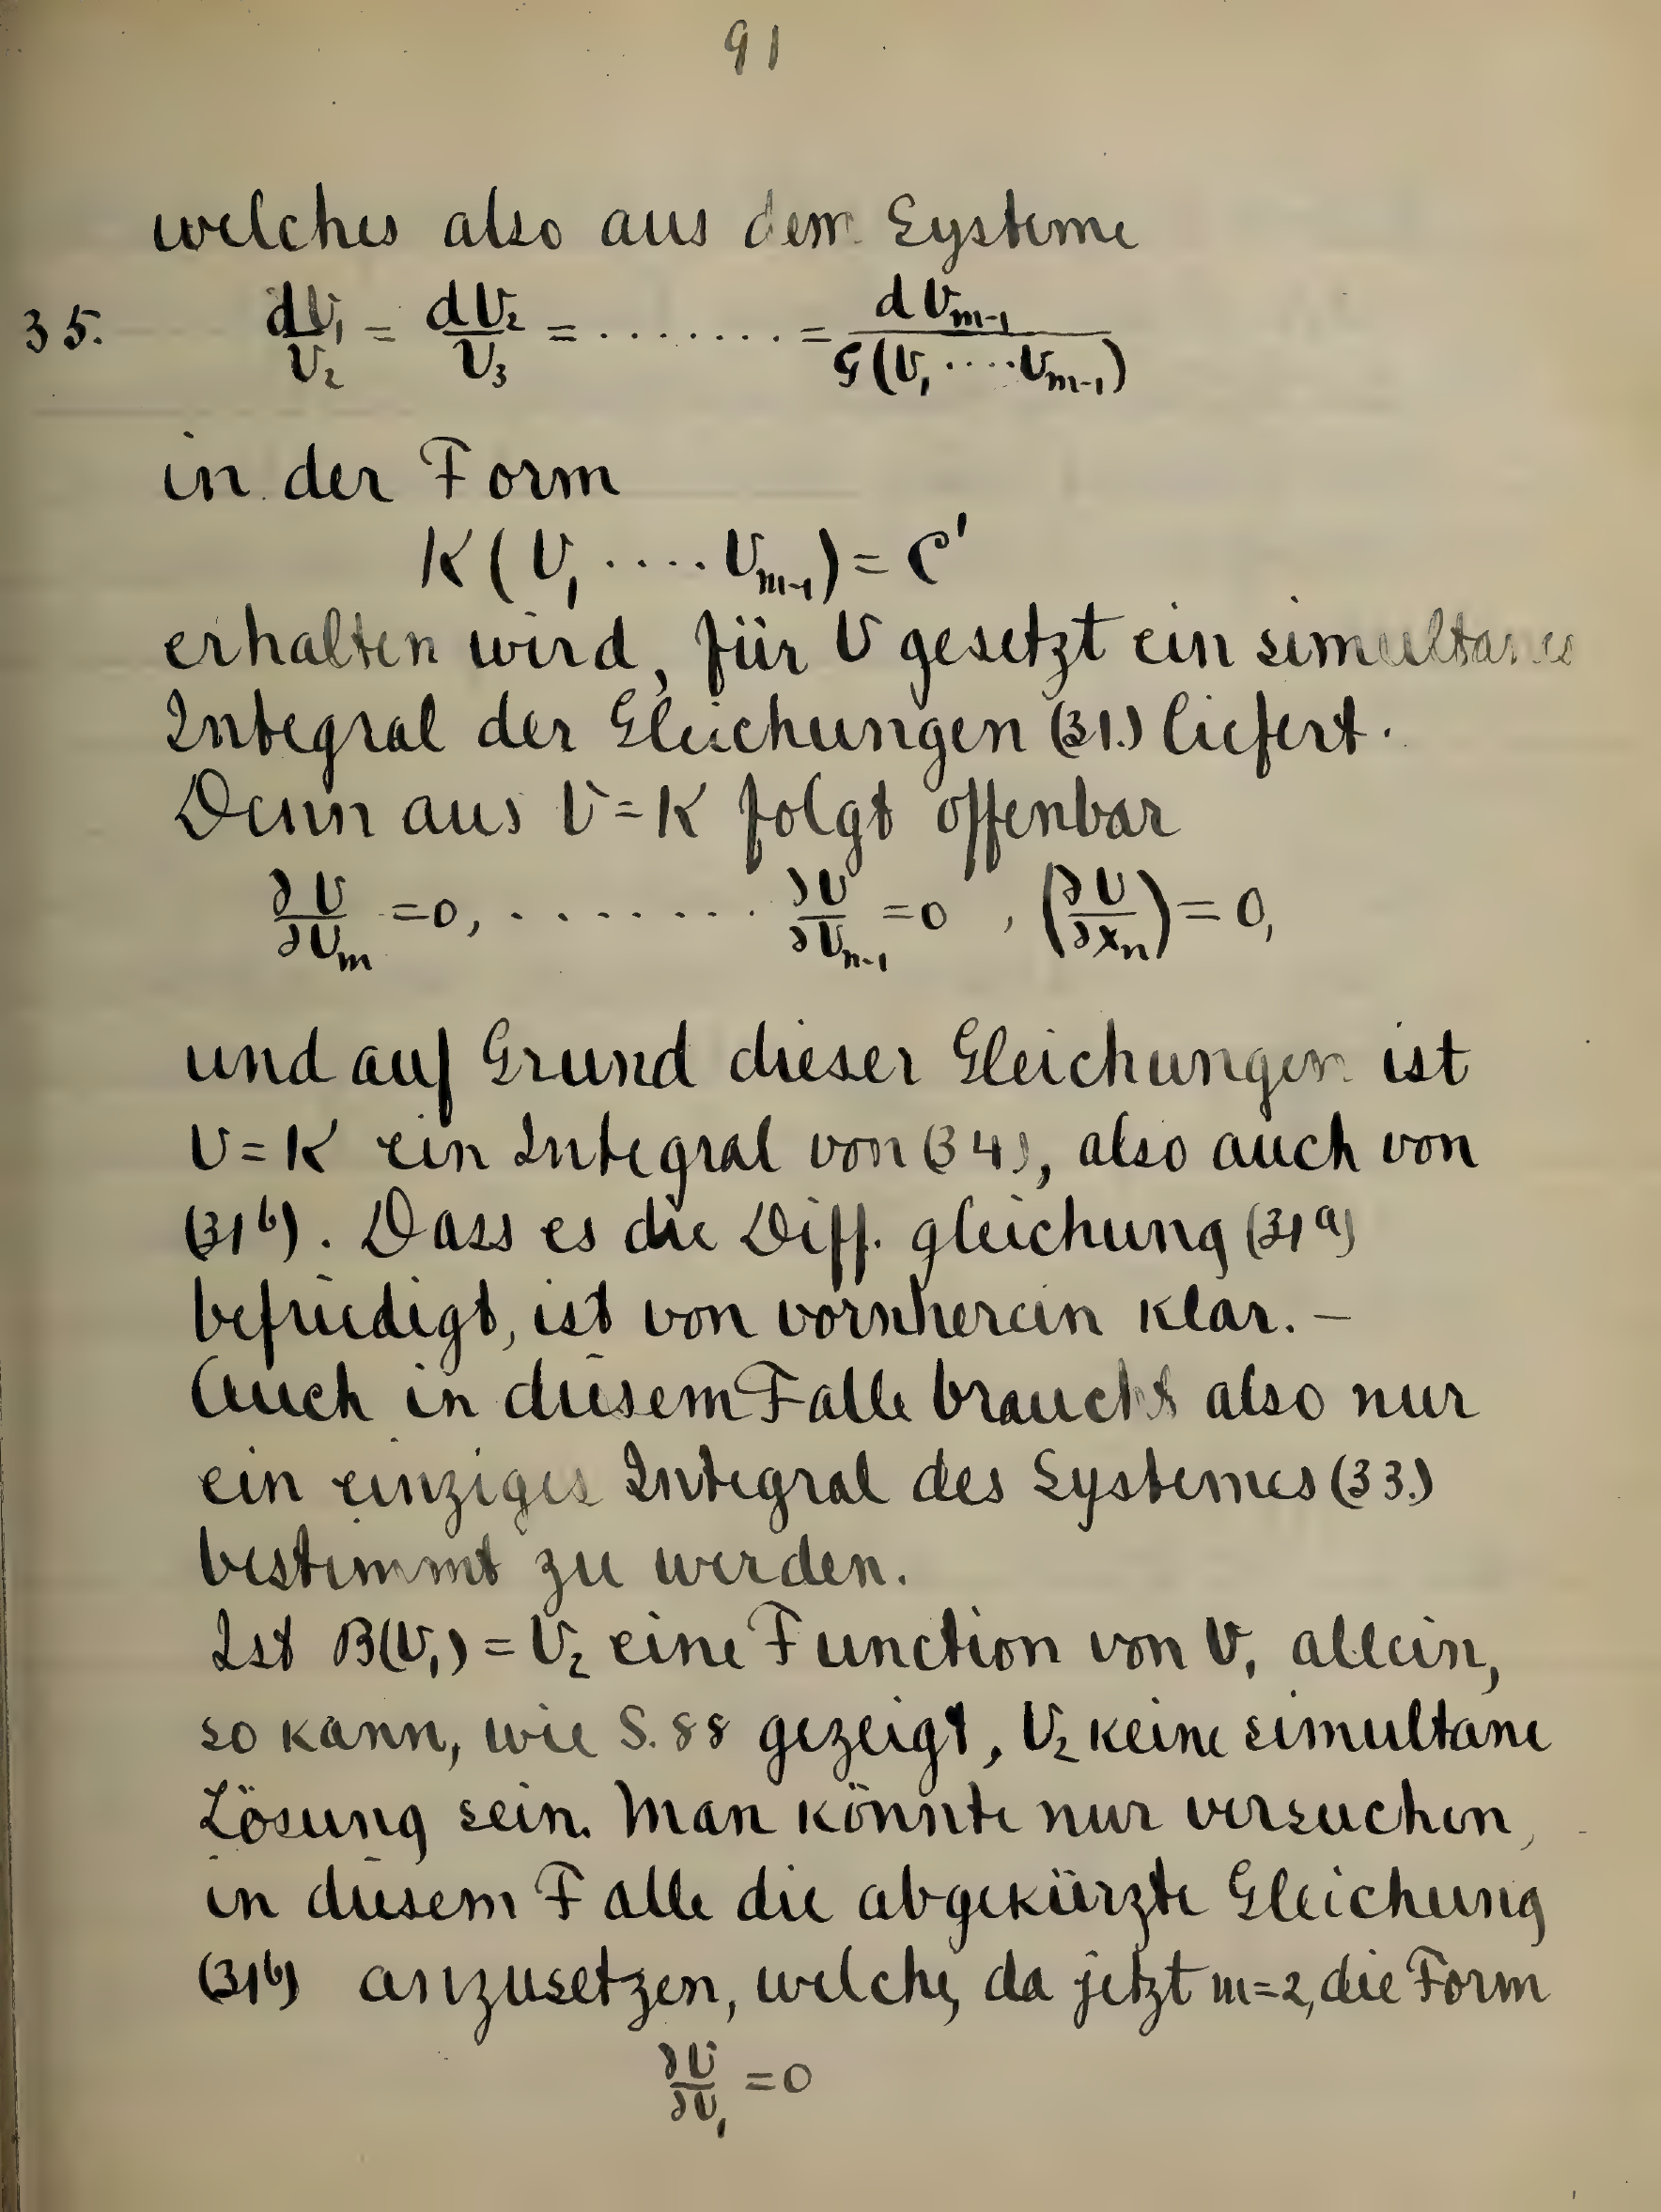 91
welches also aus dem Systeme
35. dU₁/U₂ = dU₂/U₃ = ........ = dUₘ₋₁/G(U₁ ····Uₘ₋₁)
in der Form
K(U₁ ····Uₘ₋₁) = C'
erhalten wird, für U gesetzt ein simultanes
Integral der Gleichungen (31.) liefert.
Denn aus U=K folgt offenbar
∂U/∂Uₘ =0, ........ ∂U/∂Uₙ₋₁ =0 , (∂U/∂xₙ) = 0,
und auf Grund dieser Gleichungen ist
U=K ein Integral von (34), also auch von
(31ᵇ). Dass es die Diff. gleichung (31ᵃ)
befriedigt, ist von vornherein klar. –
Auch in diesem Falle braucht also nur
ein einziges Integral des Systemes (33.)
bestimmt zu werden.
Ist B(U₁) = U₂ eine Function von U₁ allein,
so kann, wie S. 88 gezeigt, U₂ keine simultane
Lösung sein. Man könnte nur versuchen,
in diesem Falle die abgekürzte Gleichung
(31ᵇ) anzusetzen, welche, da jetzt m=2, die Form
∂U/∂U₁ =0